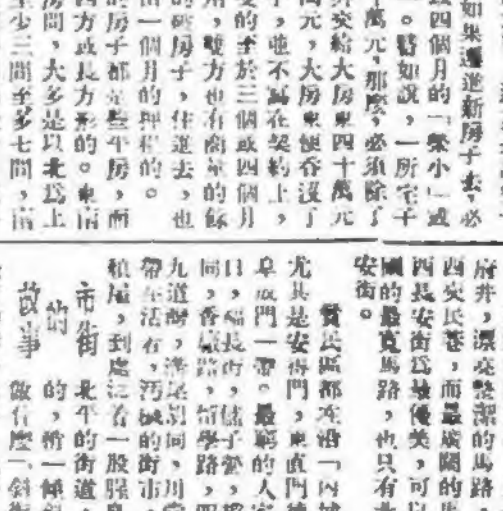 如果遷進新房子去，必
或四個月的「幾小」或
。譬如說，一所宅子
萬元，那麼，必須除了
外交給大房東四十萬元
萬元，大房東便吞沒了
，並不寫在契約上，
的至於三個或四個月
，雙方也有商量的餘
的破房子，住進去，也
一個月的押租的。
的房子都是些平房，而
四方或長方形的。東南
房間，大多是以北爲上
至少三間至多七間，南
府井，漂亮整潔的馬路
西交民巷，而最廣闊的馬
西長安街爲最優美，可以
國的最寬馬路，也只有
安街。
貧民區都在沿「內城
尤其是安得門，東直門
阜成門一帶。最窮的人家
口，福長街，儲子營，
同，香廠路，留學路，四
九道灣，溝尾胡同，川
帶生活着，汚穢的街市
積屋，到處沁着一股腥臭
市街的故事
北平的街道
的，稍一傾斜
做什麼「斜街